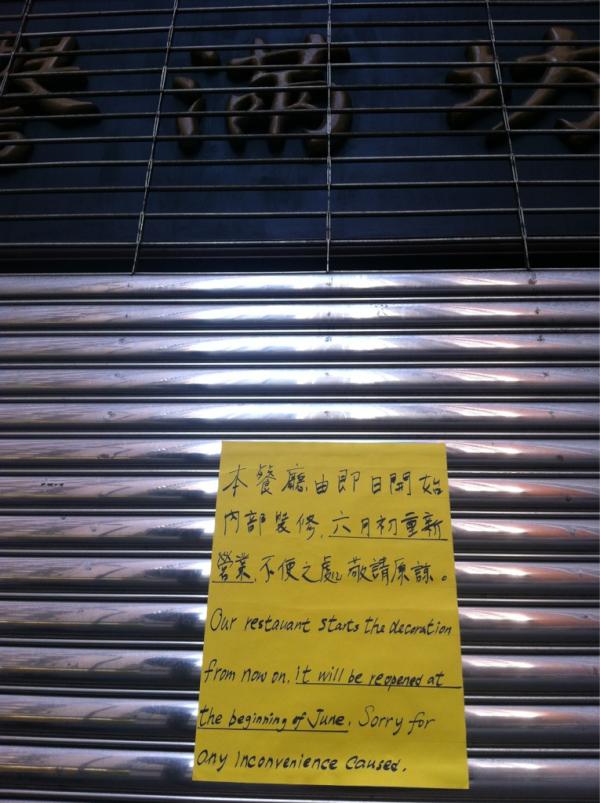 本餐廳由即日開始
內部裝修,六月初重新
營業,不便之處敬請原諒。
Our restauant starts the decoration
from now on. it will be reopened at
the beginning of June. Sorry for
any inconvenience caused.